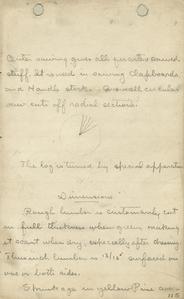 Center sawing gives all quarter sawed
stuff. It is used in sawing Clapboards
and Handle stock. A small circular
saw cuts off radial sections.
The log is turned by special apparatus
Dimensions
Rough lumber is customarily cut
in full thickness when green, making
it scant when dry, especially after dressing
Thus inch lumber is 13/16" surfaced on
one or both sides.
Shrinkage in yellow Pine
115